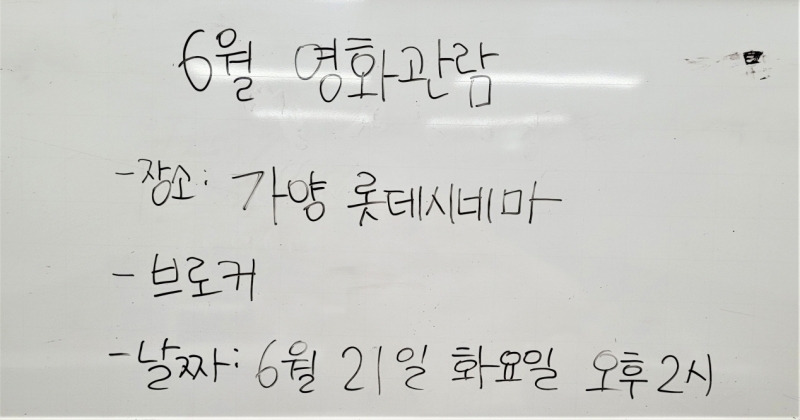 6월 영화관람
- 장소: 가양 롯데시네마
- 브로커
- 날짜: 6월 21일 화요일 오후2시